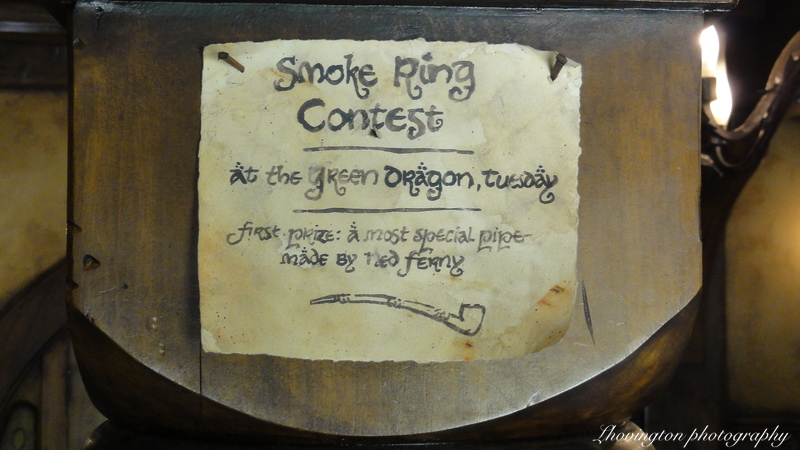 Smoke Ring
Contest
at the Green Dragon, Tuesday
first prize: a most special pipe-
made by Ned Ferny
Lhovington photography